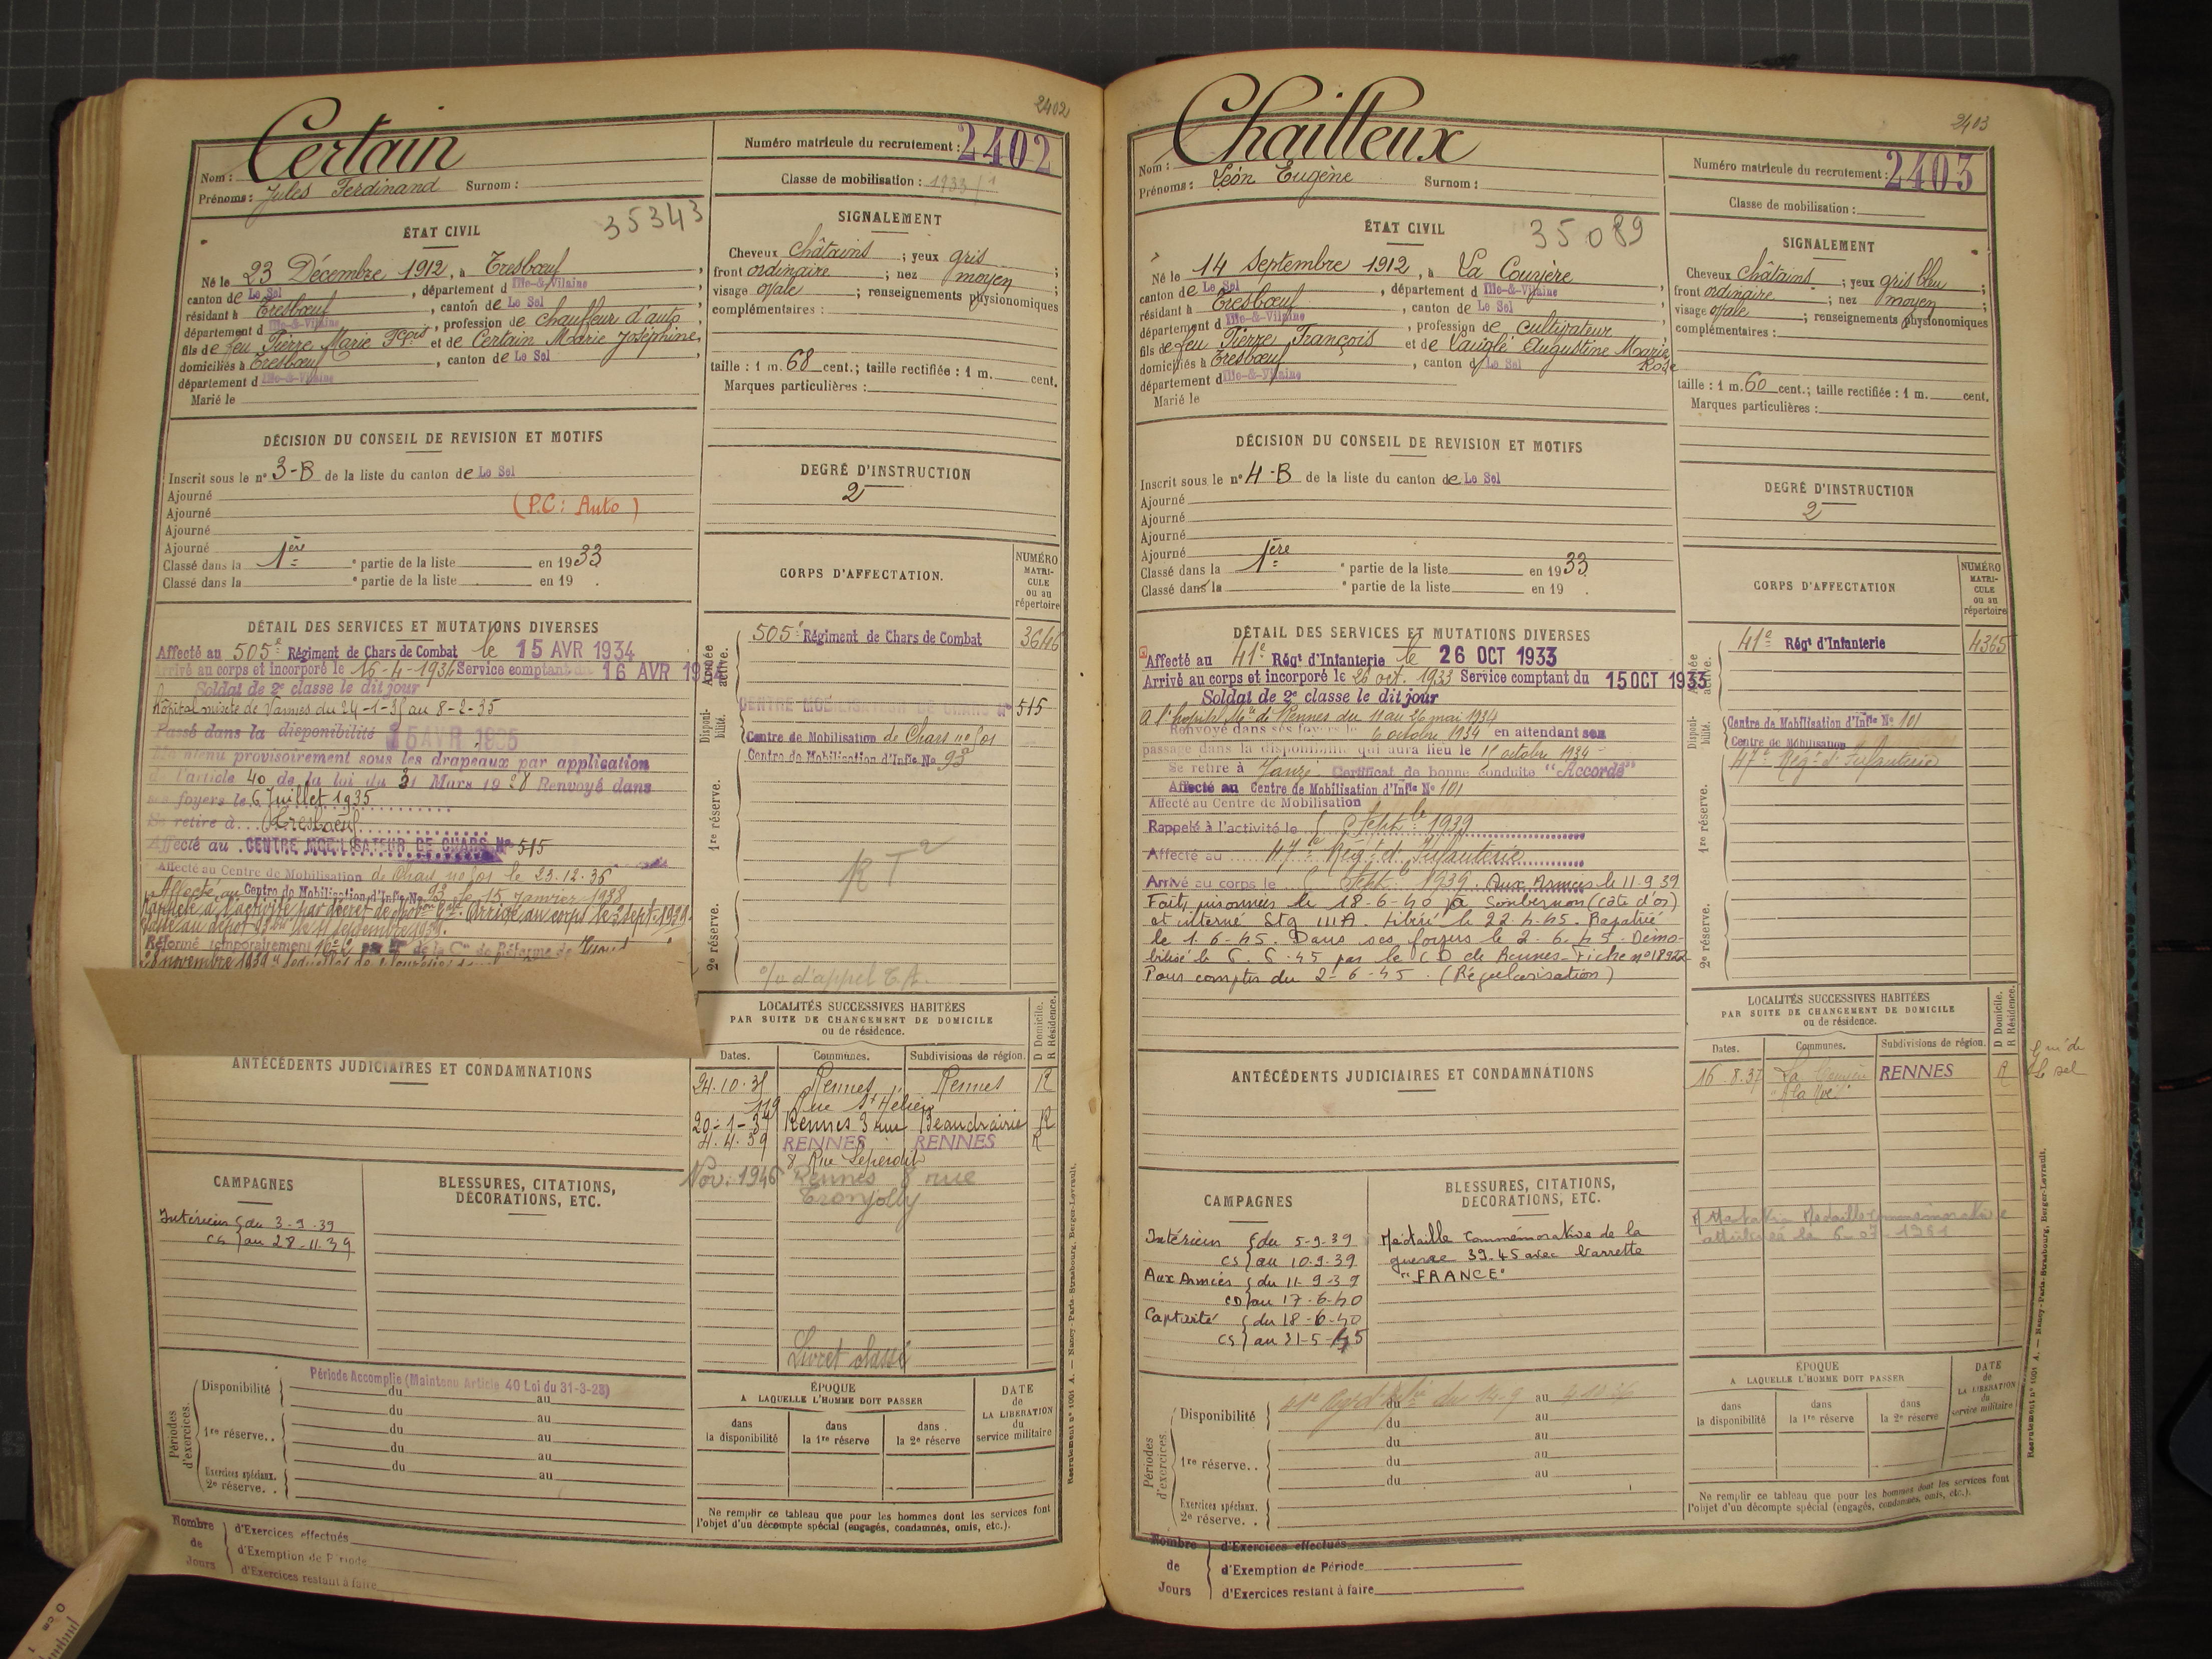 2402
Certain
Nom :
Prénoms : Jules Ferdinand Surnom :
Numéro matricule du recrutement : 2402
Classe de mobilisation : 1933/1
35343
ÉTAT CIVIL
Né le 23 Décembre 1912, à Tresbœuf,
canton de Le Sel, département d Ille-&-Vilaine,
résidant à Tresbœuf, canton de Le Sel,
département d Ille-&-Vilaine, profession de chauffeur d'auto,
fils de feu Pierre Marie Fçois et de Certain Marie Joséphine,
domiciliés à Tresbœuf, canton de Le Sel,
département d Ille-&-Vilaine
Marié le
SIGNALEMENT
Cheveux châtains ; yeux gris ;
front ordinaire ; nez moyen ;
visage ovale ; renseignements physionomiques
complémentaires :
taille : 1 m. 68 cent.; taille rectifiée : 1 m. cent.
Marques particulières :
DÉCISION DU CONSEIL DE REVISION ET MOTIFS
Inscrit sous le n° 3-B de la liste du canton de Le Sel
Ajourné
(P.C: Auto)
Ajourné
Ajourné
Ajourné
Classé dans la 1ère ° partie de la liste en 1933
Classé dans la ° partie de la liste en 19 .
DEGRÉ D'INSTRUCTION
2
CORPS D'AFFECTATION.
NUMÉRO MATRI-CULE ou au répertoire
Armée active.
505e Régiment de Chars de Combat 3646
Disponi-bilité.
CENTRE MOBILISATEUR DE CHARS N° 515
Centre de Mobilisation de Chars no 501
Centre de Mobilisation d'Infie No 93
1re réserve.
2e réserve.
DÉTAIL DES SERVICES ET MUTATIONS DIVERSES
Affecté au 505e Régiment de Chars de Combat le 15 AVR 1934
Arrivé au corps et incorporé le 16-4-1934 Service comptant du 16 AVR 1934
Soldat de 2e classe le dit jour
Hôpital mixte de Vannes du 24-1-35 au 8-2-35
Passé dans la disponibilité 15 AVR 1935
Maintenu provisoirement sous les drapeaux par application
de l'article 40 de la loi du 31 Mars 1928 Renvoyé dans
ses foyers le 6 Juillet 1935
Se retire à Tresbœuf
Affecté au CENTRE MOBILISATEUR DE CHARS N° 515
Affecté au Centre de Mobilisation de Chars no 501 le 23.12.36
Affecté au Centre de Mobilisation d'Infie No 93 le 15 Janvier 1938
Rappelé à l'activité par décret de Arrivé au corps le 3 sept. 1939
Réformé temporairement de la Con de Réforme de
28 novembre 1939
ANTÉCÉDENTS JUDICIAIRES ET CONDAMNATIONS
LOCALITÉS SUCCESSIVES HABITÉES
PAR SUITE DE CHANGEMENT DE DOMICILE
ou de résidence.
D Domicile. R Résidence.
Dates. Communes. Subdivisions de région.
24.10.35 Rennes Rennes R
119 Rue St Hélier
20-1-37 Rennes 3 rue Beaudrairie R
4.4.39 RENNES RENNES R
Nov. 1946 Rennes 8 rue
Tronjolly
Livret classé
CAMPAGNES
BLESSURES, CITATIONS,
DÉCORATIONS, ETC.
Intérieur du 3-9-39
CS au 28-11-39
Périodes d'exercices.
Disponibilité
Période Accomplie (Maintenu Article 40 Loi du 31-3-28)
du au
du au
1re réserve..
du au
du au
du au
Exercices spéciaux.
2e réserve..
ÉPOQUE
A LAQUELLE L'HOMME DOIT PASSER
dans la disponibilité
dans la 1re réserve
dans la 2e réserve
DATE de LA LIBÉRATION du service militaire
Ne remplir ce tableau que pour les hommes dont les services font
l'objet d'un décompte spécial (engagés, condamnés, omis, etc.).
Nombre de Jours
d'Exercices effectués
d'Exemption de Période
d'Exercices restant à faire
Recrutement n° 1051 A. — Nancy-Paris-Strasbourg, Berger-Levrault.
2403
Chailleux
Nom :
Prénoms : Léon Eugène Surnom :
Numéro matricule du recrutement : 2403
Classe de mobilisation :
35089
ÉTAT CIVIL
Né le 14 Septembre 1912, à La Couyère
canton de Le Sel, département d Ille-&-Vilaine
résidant à Tresbœuf, canton de Le Sel
département d Ille-&-Vilaine, profession de cultivateur
fils de feu Pierre François et de Lauglé Augustine Marie Rose
domiciliés à Tresbœuf, canton de Le Sel
département d Ille-&-Vilaine
Marié le
SIGNALEMENT
Cheveux châtains ; yeux gris bleu ;
front ordinaire ; nez moyen ;
visage ovale ; renseignements physionomiques
complémentaires :
taille : 1 m. 60 cent.; taille rectifiée : 1 m. cent.
Marques particulières :
DÉCISION DU CONSEIL DE REVISION ET MOTIFS
Inscrit sous le n° 4-B de la liste du canton de Le Sel
Ajourné
Ajourné
Ajourné
Ajourné
Classé dans la 1ère ° partie de la liste en 1933
Classé dans la ° partie de la liste en 19 .
DEGRÉ D'INSTRUCTION
2
CORPS D'AFFECTATION
NUMÉRO MATRI-CULE ou au répertoire
Armée active.
41e Régt d'Infanterie 4365
Disponi-bilité.
Centre de Mobilisation d'Infie No 101
Centre de Mobilisation
47e Régt d'Infanterie
1re réserve.
2e réserve.
DÉTAIL DES SERVICES ET MUTATIONS DIVERSES
Affecté au 41e Régt d'Infanterie le 26 OCT 1933
Arrivé au corps et incorporé le 26 oct. 1933 Service comptant du 15 OCT 1933
Soldat de 2e classe le dit jour
A l'hôpital Mre de Rennes du 11 au 26 mai 1934
Renvoyé dans ses foyers le 6 octobre 1934 en attendant son
passage dans la disponibilité qui aura lieu le 15 octobre 1934
Se retire à Janzé Certificat de bonne conduite "Accordé"
Affecté au Centre de Mobilisation d'Infie No 101
Affecté au Centre de Mobilisation
Rappelé à l'activité le 5 Septbre 1939
Affecté au 47e Régt d'Infanterie
Arrivé au corps le Sept. 1939. Aux Armées le 11-9-39
Fait prisonnier le 18-6-40 à Sombernon (Côte d'or)
et interné Stg IIIA. Libéré le 22-4-45. Rapatrié
le 1-6-45. Dans ses foyers le 2-6-45. Démo-
bilisé le 6-6-45 par le CD de Rennes-Fiche no 18922
Pour compter du 2-6-45. (Régularisation)
ANTÉCÉDENTS JUDICIAIRES ET CONDAMNATIONS
LOCALITÉS SUCCESSIVES HABITÉES
PAR SUITE DE CHANGEMENT DE DOMICILE
ou de résidence.
D Domicile. R Résidence.
Dates. Communes. Subdivisions de région.
16.8.37 La Couyère RENNES R
CAMPAGNES
BLESSURES, CITATIONS,
DÉCORATIONS, ETC.
Intérieur du 5-9-39
CS au 10-9-39
Aux Armées du 11-9-39
CD au 17-6-40
Captivité du 18-6-40
CS au 31-5-45
Médaille Commémorative de la
guerre 39-45 avec barrette
"FRANCE"
Périodes d'exercices.
Disponibilité
du au
du au
1re réserve..
du au
du au
du au
Exercices spéciaux.
2e réserve..
ÉPOQUE
A LAQUELLE L'HOMME DOIT PASSER
dans la disponibilité
dans la 1re réserve
dans la 2e réserve
DATE de LA LIBÉRATION du service militaire
Ne remplir ce tableau que pour les hommes dont les services font
l'objet d'un décompte spécial (engagés, condamnés, omis, etc.).
Nombre de Jours
d'Exercices effectués
d'Exemption de Période
d'Exercices restant à faire
Recrutement n° 1051 A. — Nancy-Paris-Strasbourg, Berger-Levrault.